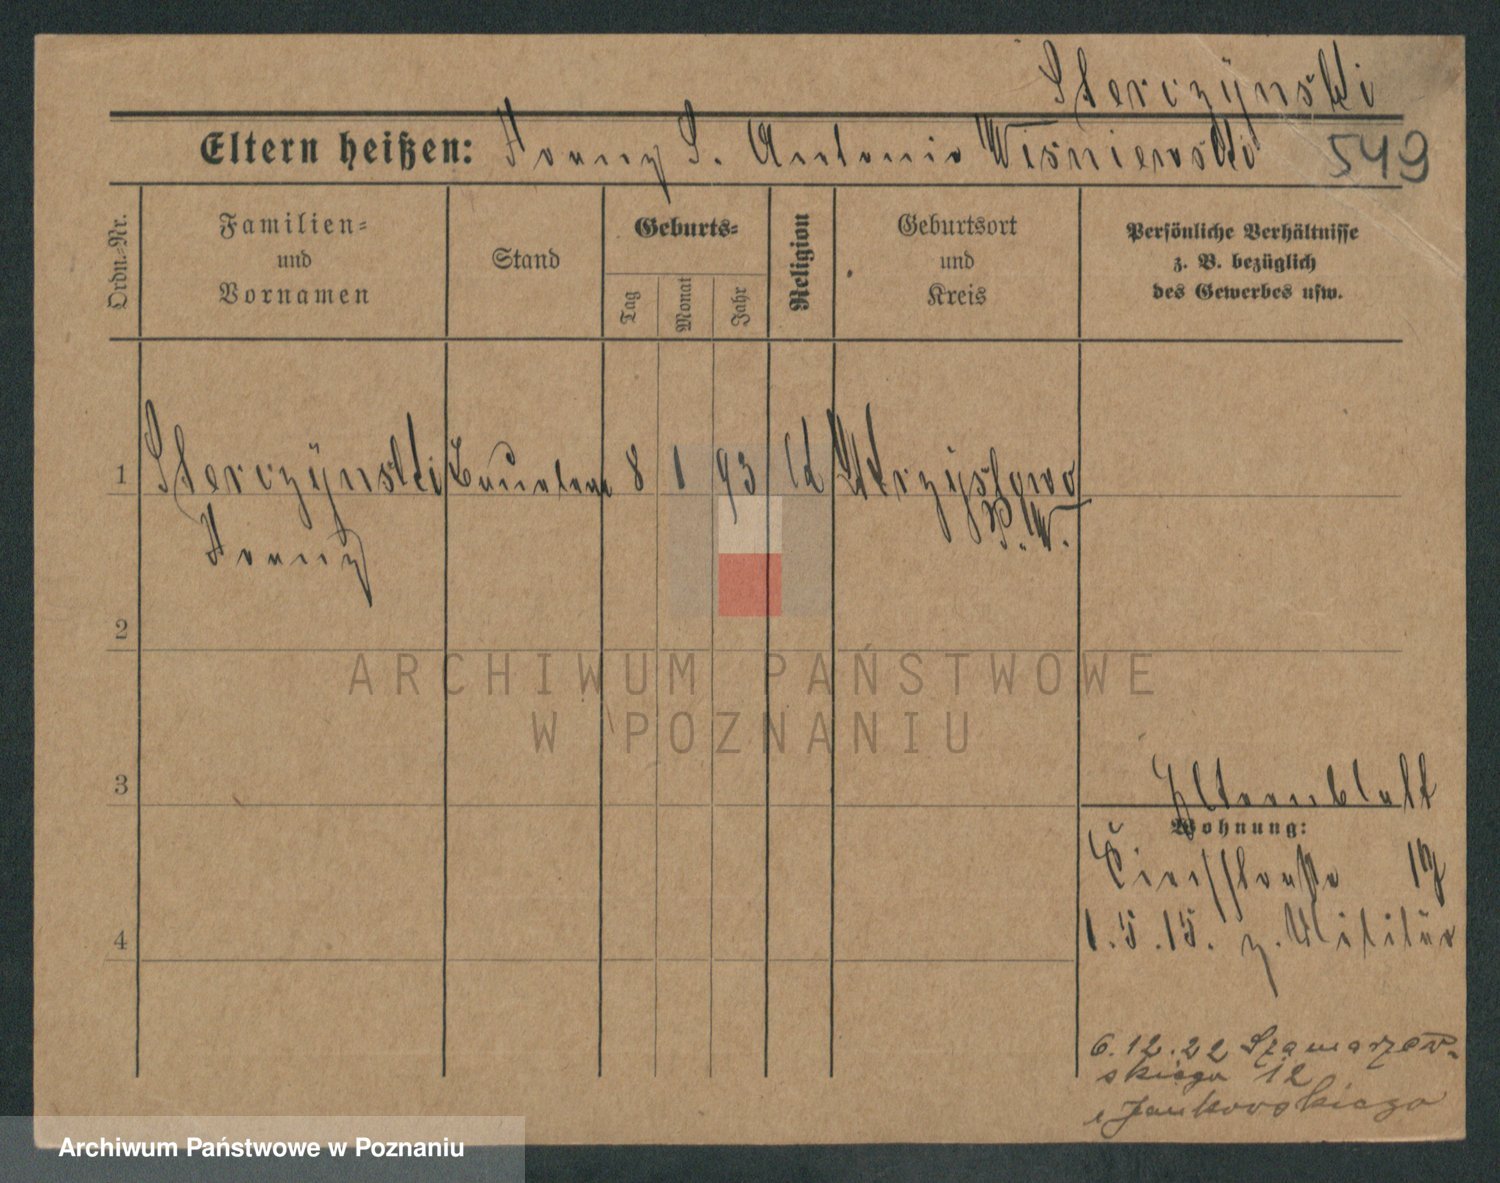 Sterczÿnski
Eltern heißen: Franz S. Antonie Wiśniewski 549
Ordn.-Nr.
Familien-
und
Vornamen
Stand
Geburts-
Tag
Monat
Jahr
Religion
Geburtsort
und
Kreis
Persönliche Verhältnisse
z. B. bezüglich
des Gewerbes usw.
1 Sterczÿnski 8 1 93
Franz
P. W.
2
ARCHIWUM PAŃSTWOWE
W POZNANIU
3
Elternblatt
Wohnung:
17
1.5.15. z. Militär
4
6.12.22 Szamarzew-
skiego 12
Jankowskiego
Archiwum Państwowe w Poznaniu